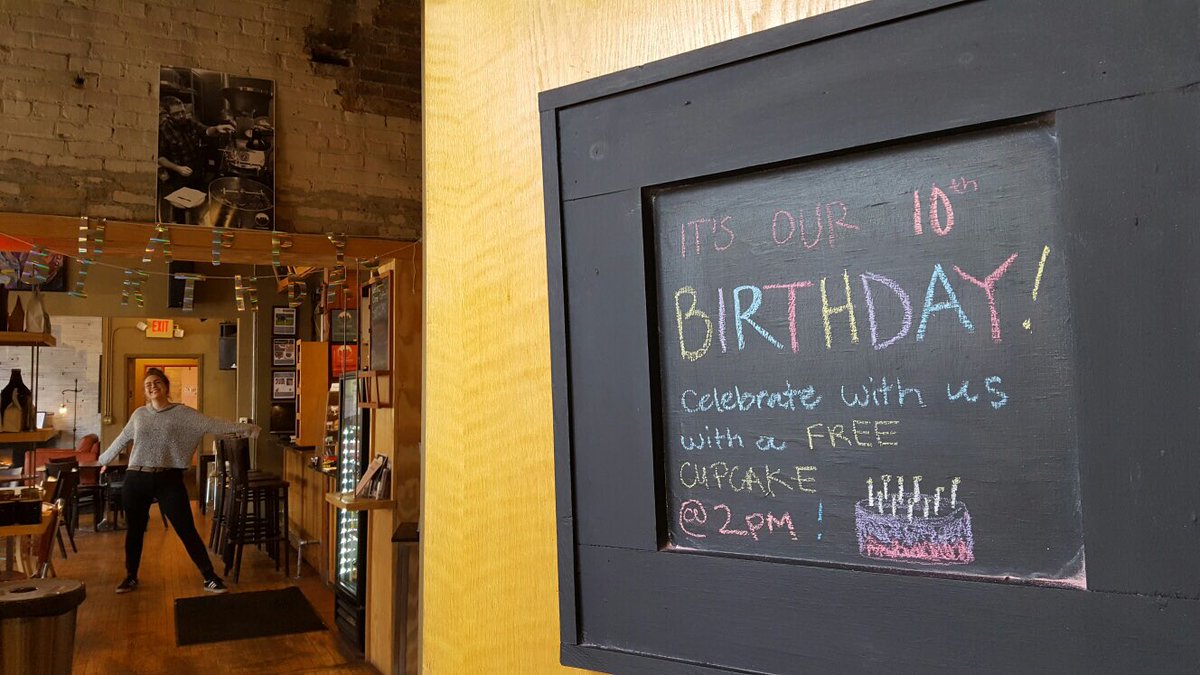 EXIT
IT'S OUR 10th
BIRTHDAY!
Celebrate with us
with a FREE
CUPCAKE
@ 2pm !